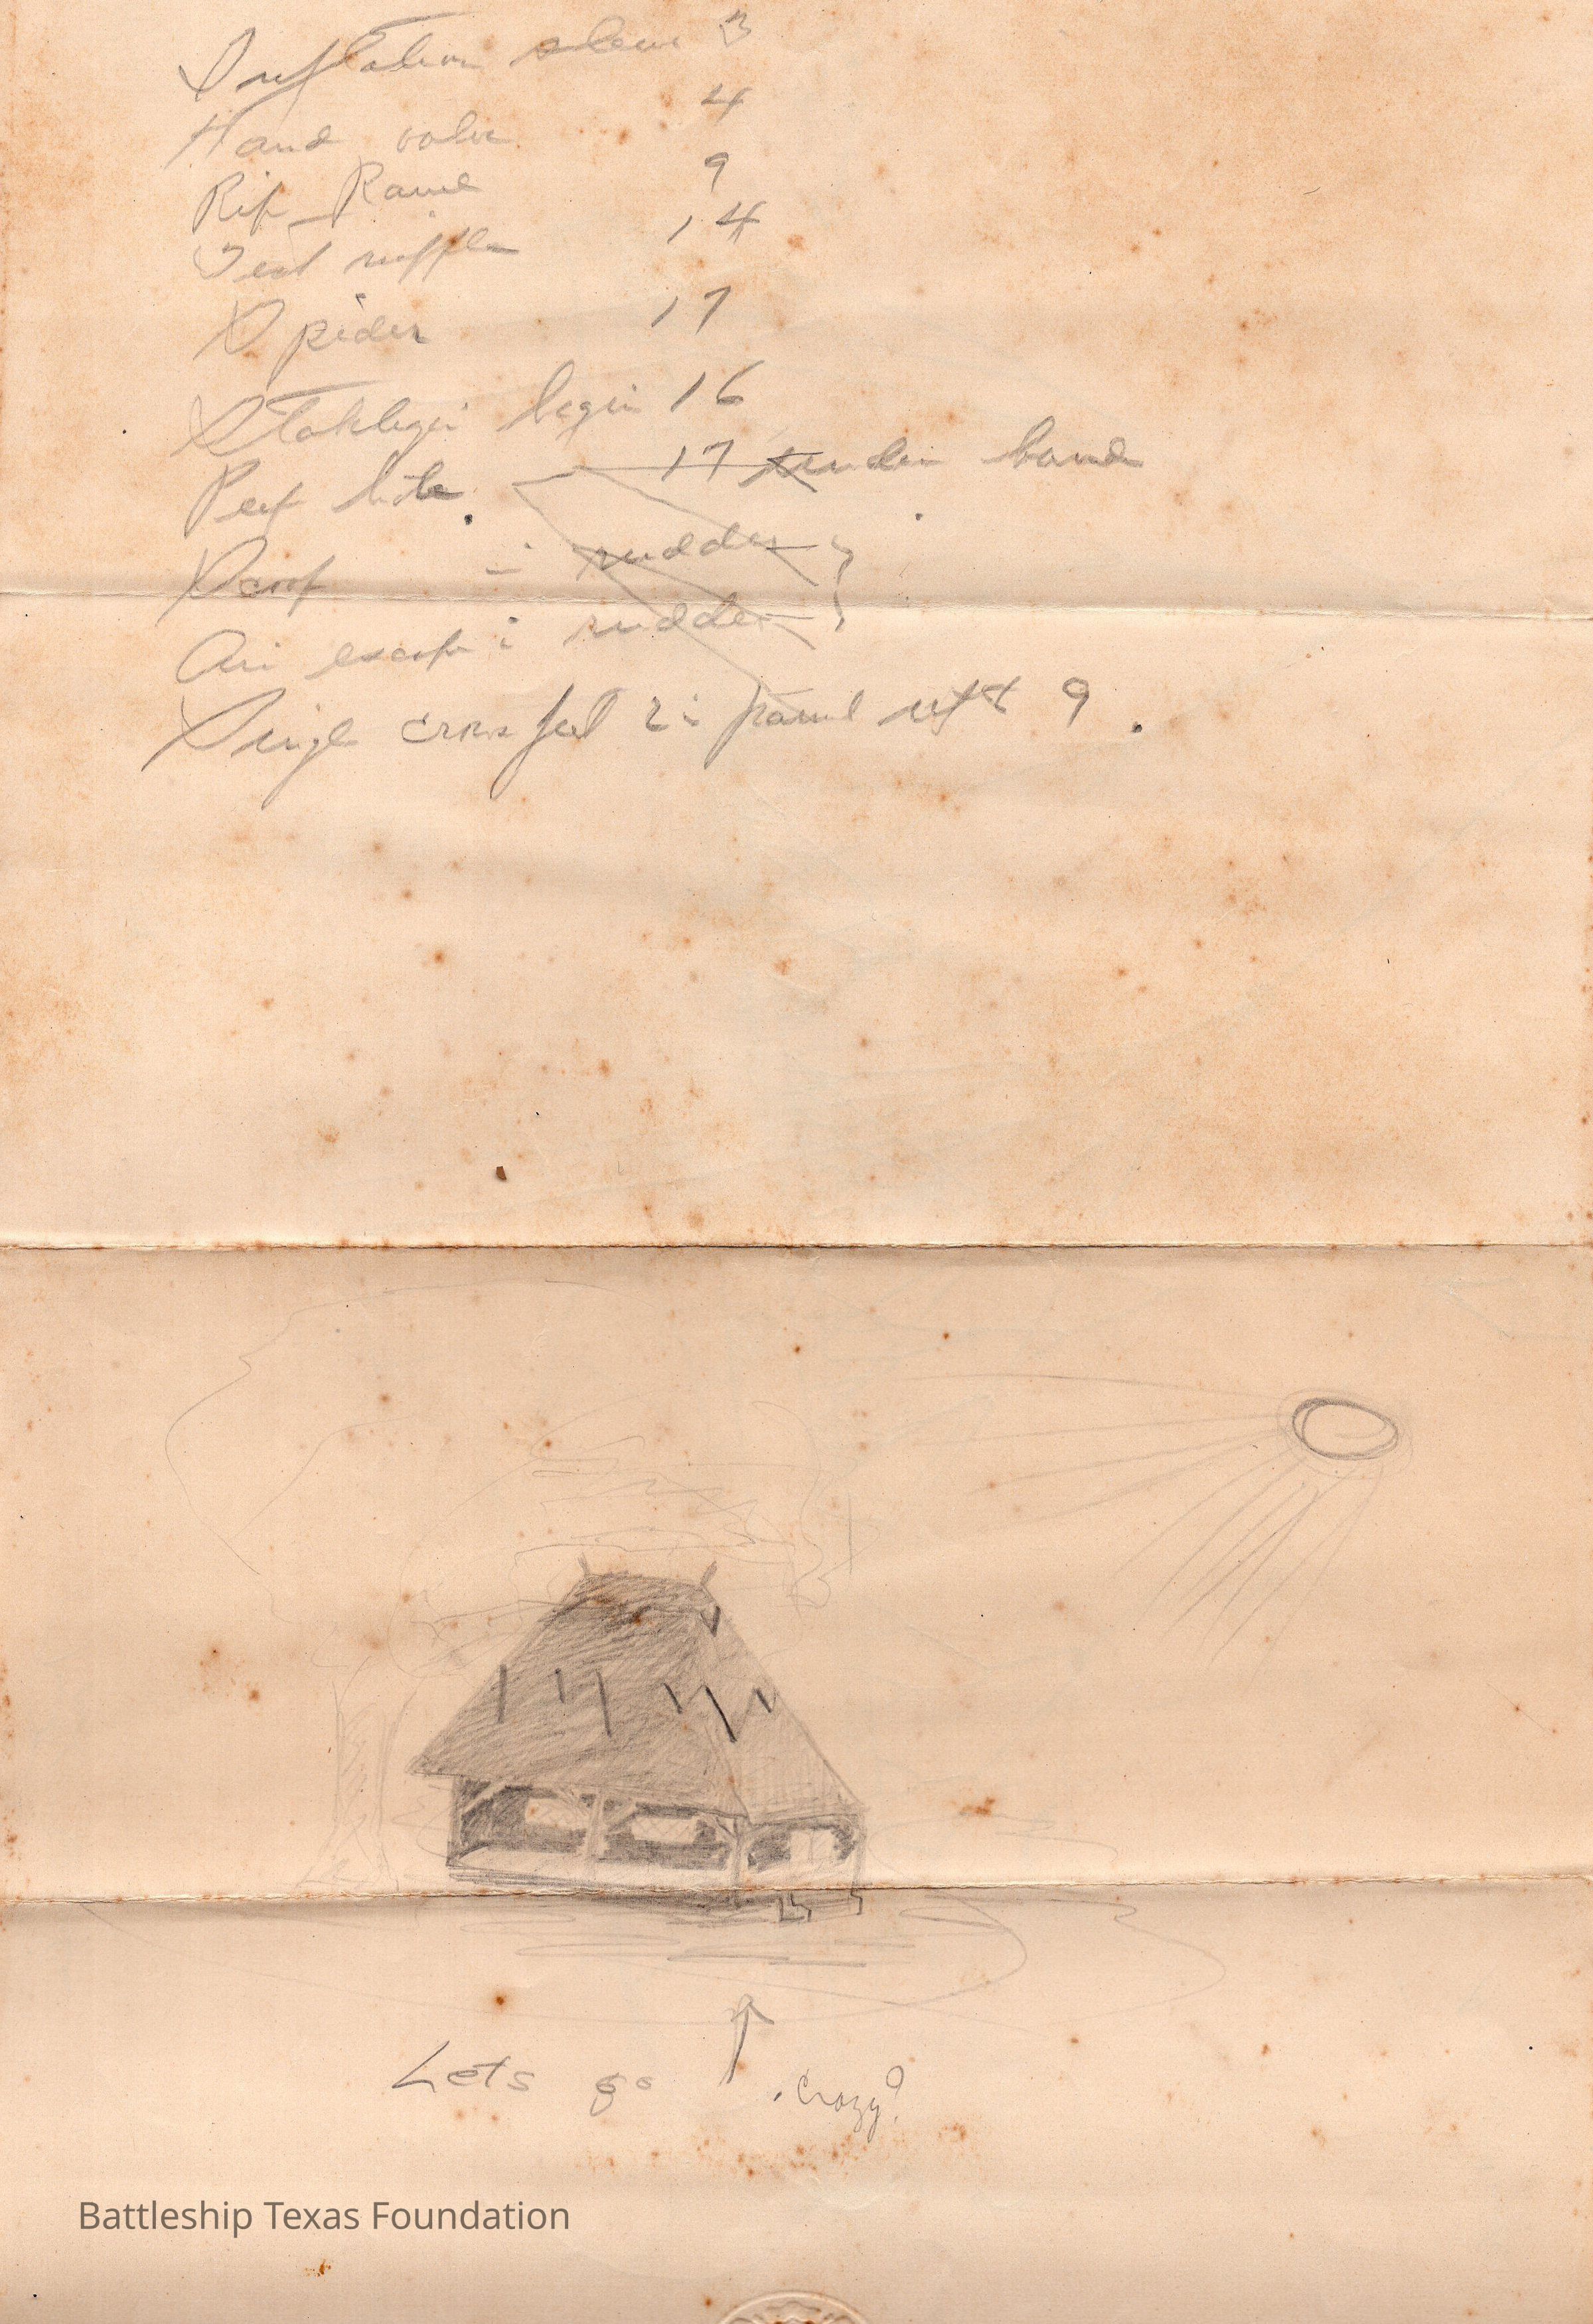 Inflation sleeve 3
Hand valve 4
Rip Panel 9
Test nipple 14
Spider 17
begin 16
Peep hole 17 under band
Scoop in rudder
Air escape in rudder
Single crow foot 2 in panel 9.
Lets go crazy?
Battleship Texas Foundation